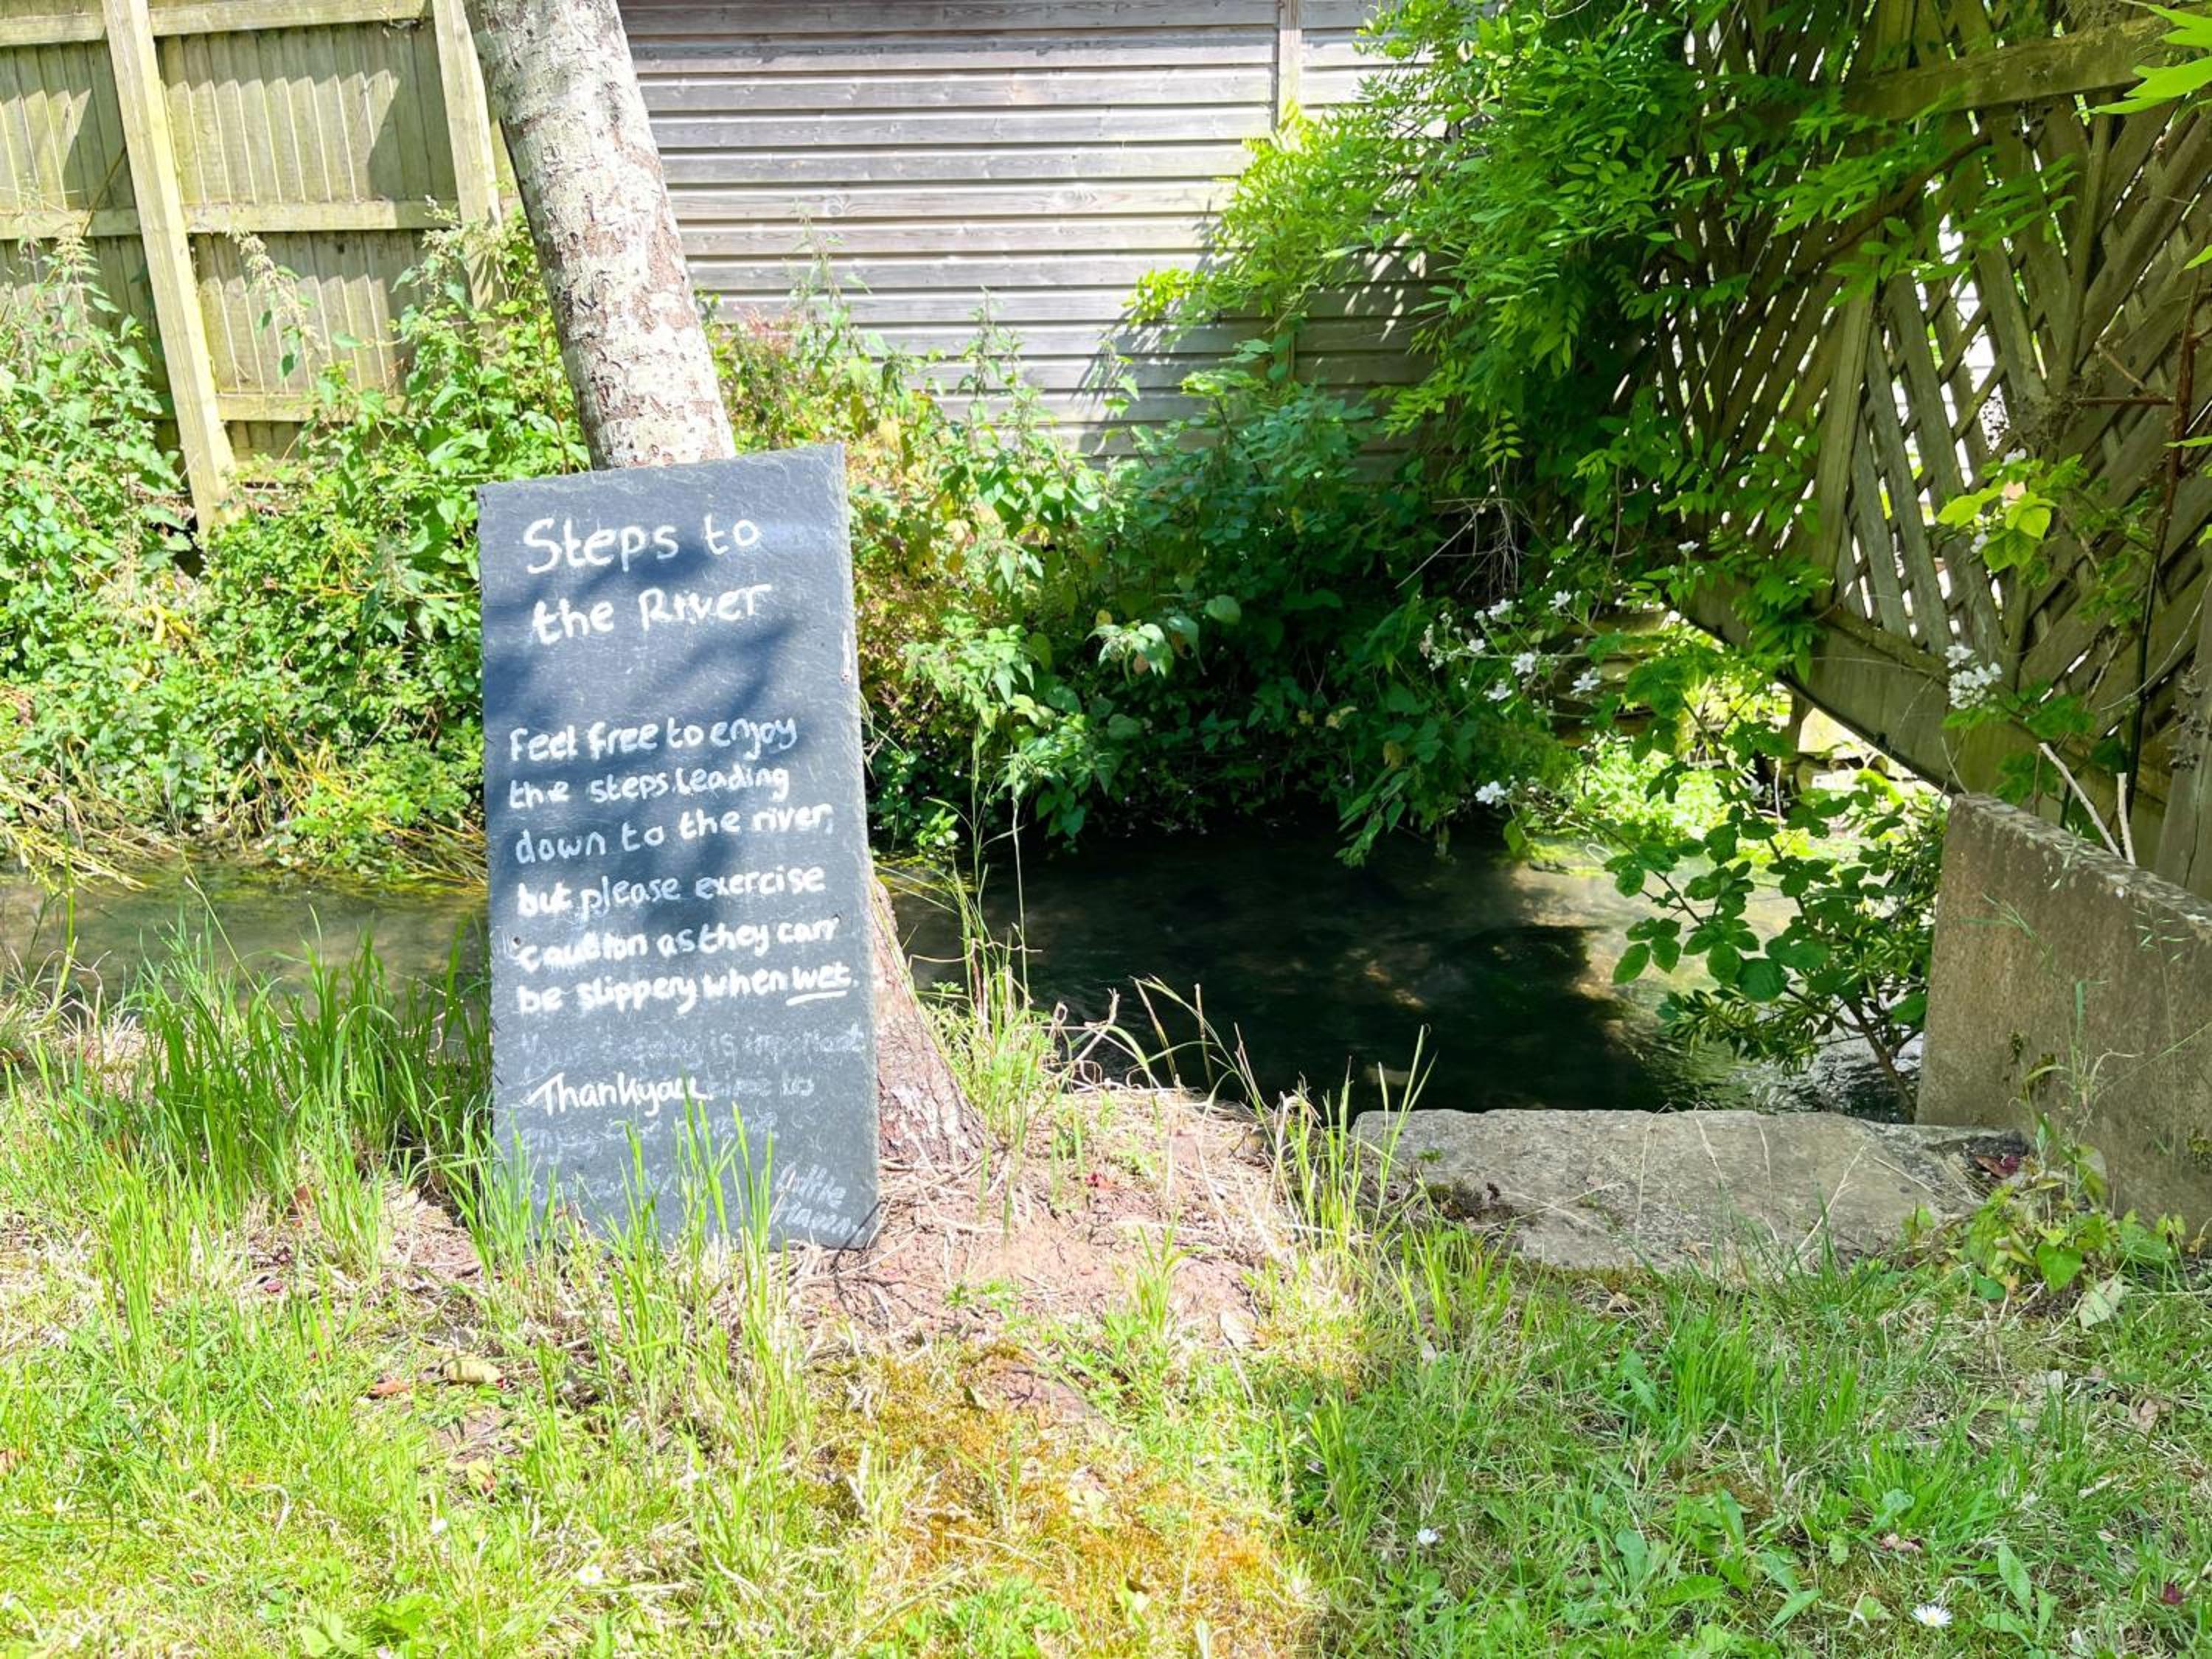 Steps to
the River
Feel free to enjoy
the steps leading
down to the river,
but please exercise
caution as they can
be slippery when wet.
Your safety is important
Thankyou